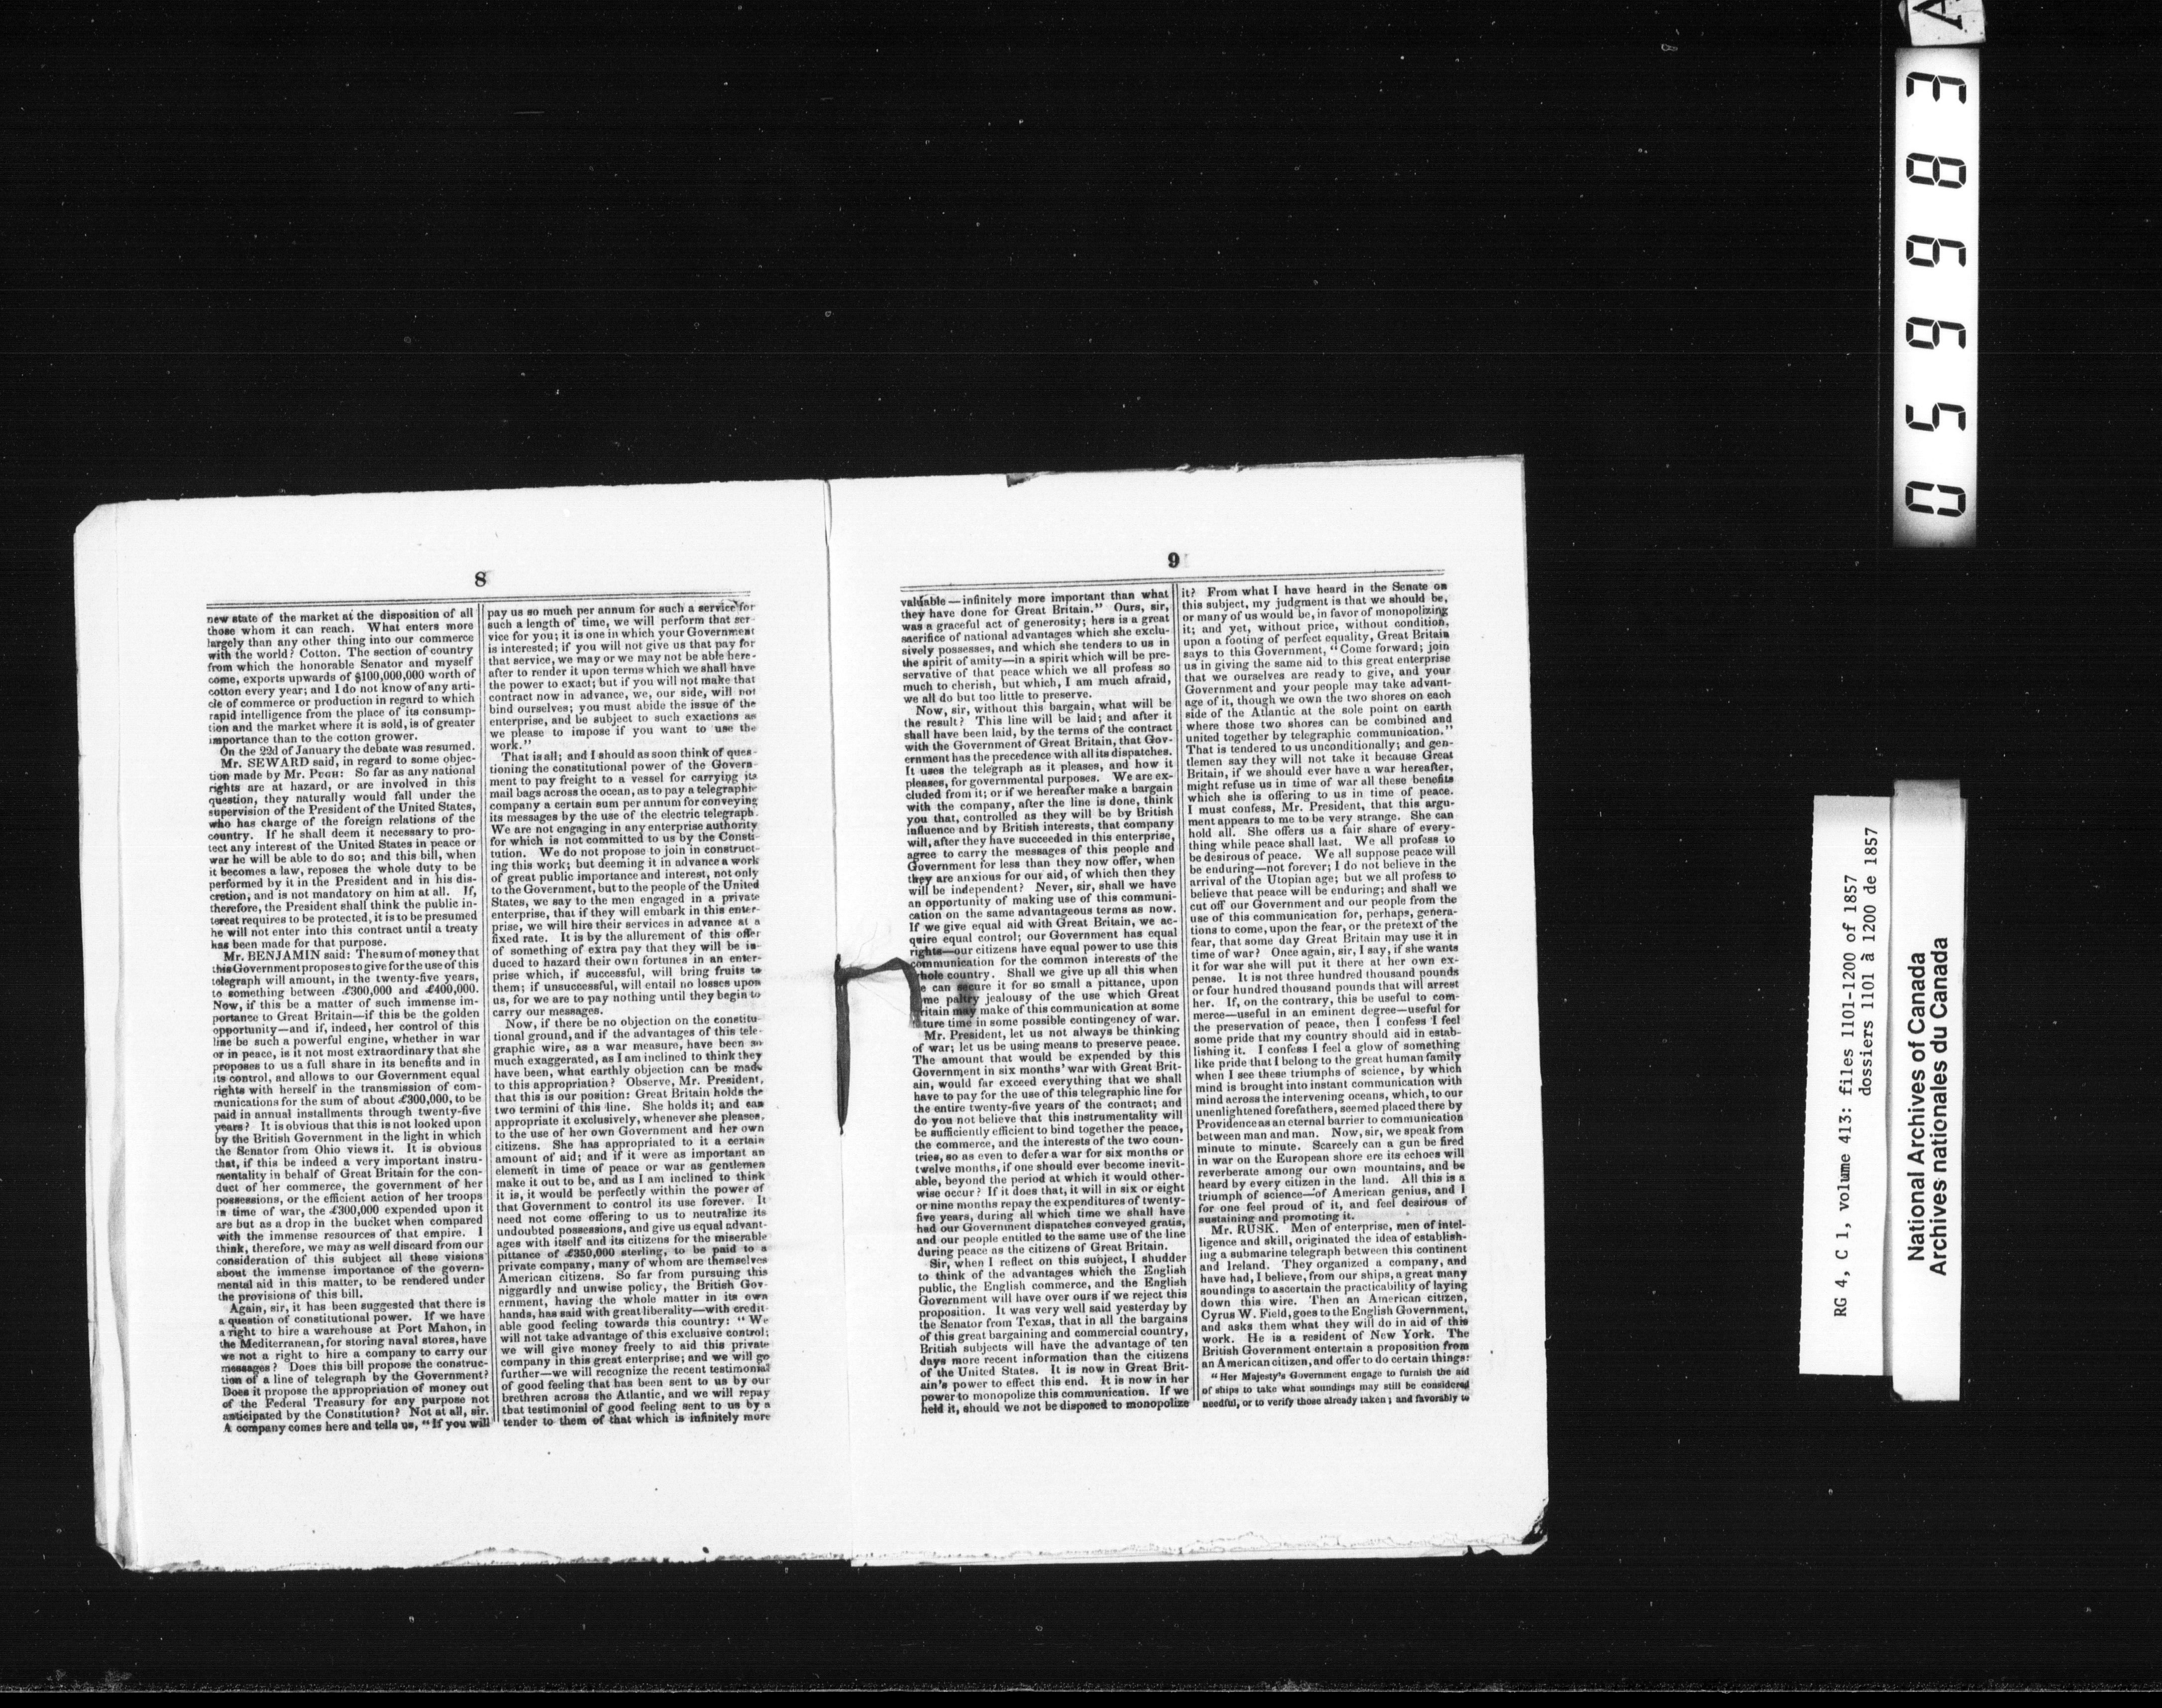 8
new state of the market at the disposition of all
those whom it can reach. What enters more
largely than any other thing into our commerce
with the world? Cotton. The section of country
from which the honorable Senator and myself
come, exports upwards of $100,000,000 worth of
cotton every year; and I do not know of any arti-
cle of commerce or production in regard to which
rapid intelligence from the place of its consump-
tion and the market where it is sold, is of greater
importance than to the cotton grower.
On the 22d of January the debate was resumed.
Mr. SEWARD said, in regard to some objec-
tion made by Mr. PUGH: So far as any national
rights are at hazard, or are involved in this
question, they naturally would fall under the
supervision of the President of the United States,
who has charge of the foreign relations of the
country. If he shall deem it necessary to pro-
tect any interest of the United States in peace or
war he will be able to do so; and this bill, when
it becomes a law, reposes the whole duty to be
performed by it in the President and in his dis-
cretion, and is not mandatory on him at all. If,
therefore, the President shall think the public in-
terest requires to be protected, it is to be presumed
he will not enter into this contract until a treaty
has been made for that purpose.
Mr. BENJAMIN said: The sum of money that
this Government proposes to give for the use of this
telegraph will amount, in the twenty-five years,
to something between £300,000 and £400,000.
Now, if this be a matter of such immense im-
portance to Great Britain—if this be the golden
opportunity—and if, indeed, her control of this
line be such a powerful engine, whether in war
or in peace, is it not most extraordinary that she
proposes to us a full share in its benefits and in
its control, and allows to our Government equal
rights with herself in the transmission of com-
munications for the sum of about £300,000, to be
paid in annual installments through twenty-five
years? It is obvious that this is not looked upon
by the British Government in the light in which
the Senator from Ohio views it. It is obvious
that, if this be indeed a very important instru-
mentality in behalf of Great Britain for the con-
duct of her commerce, the government of her
possessions, or the efficient action of her troops
in time of war, the £300,000 expended upon it
are but as a drop in the bucket when compared
with the immense resources of that empire. I
think, therefore, we may as well discard from our
consideration of this subject all these visions
about the immense importance of the govern-
mental aid in this matter, to be rendered under
the provisions of this bill.
Again, sir, it has been suggested that there is
a question of constitutional power. If we have
a right to hire a warehouse at Port Mahon, in
the Mediterranean, for storing naval stores, have
we not a right to hire a company to carry our
messages? Does this bill propose the construc-
tion of a line of telegraph by the Government?
Does it propose the appropriation of money out
of the Federal Treasury for any purpose not
anticipated by the Constitution? Not at all, sir.
A company comes here and tells us, "If you will
pay us so much per annum for such a service for
such a length of time, we will perform that ser-
vice for you; it is one in which your Government
is interested; if you will not give us that pay for
that service, we may or we may not be able here-
after to render it upon terms which we shall have
the power to exact; but if you will not make that
contract now in advance, we, our side, will not
bind ourselves; you must abide the issue of the
enterprise, and be subject to such exactions as
we please to impose if you want to use the
work."
That is all; and I should as soon think of ques-
tioning the constitutional power of the Govern-
ment to pay freight to a vessel for carrying its
mail bags across the ocean, as to pay a telegraphic
company a certain sum per annum for conveying
its messages by the use of the electric telegraph.
We are not engaging in any enterprise authority
for which is not committed to us by the Consti-
tution. We do not propose to join in construct-
ing this work; but deeming it in advance a work
of great public importance and interest, not only
to the Government, but to the people of the United
States, we say to the men engaged in a private
enterprise, that if they will embark in this enter-
prise, we will hire their services in advance at a
fixed rate. It is by the allurement of this offer
of something of extra pay that they will be in-
duced to hazard their own fortunes in an enter-
prise which, if successful, will bring fruits to
them; if unsuccessful, will entail no losses upon
us, for we are to pay nothing until they begin to
carry our messages.
Now, if there be no objection on the constitu-
tional ground, and if the advantages of this tele-
graphic wire, as a war measure, have been so
much exaggerated, as I am inclined to think they
have been, what earthly objection can be made
to this appropriation? Observe, Mr. President,
that this is our position: Great Britain holds the
two termini of this line. She holds it; and can
appropriate it exclusively, whenever she pleases,
to the use of her own Government and her own
citizens. She has appropriated to it a certain
amount of aid; and if it were as important an
element in time of peace or war as gentlemen
make it out to be, and as I am inclined to think
it is, it would be perfectly within the power of
that Government to control its use forever. It
need not come offering to us to neutralize its
undoubted possessions, and give us equal advant-
ages with itself and its citizens for the miserable
pittance of £350,000 sterling, to be paid to a
private company, many of whom are themselves
American citizens. So far from pursuing this
niggardly and unwise policy, the British Gov-
ernment, having the whole matter in its own
hands, has said with great liberality—with credit-
able good feeling towards this country: "We
will not take advantage of this exclusive control;
we will give money freely to aid this private
company in this great enterprise; and we will go
further—we will recognize the recent testimonial
of good feeling that has been sent to us by our
brethren across the Atlantic, and we will repay
that testimonial of good feeling sent to us by a
tender to them of that which is infinitely more
9
valuable—infinitely more important than what
they have done for Great Britain." Ours, sir,
was a graceful act of generosity; here is a great
sacrifice of national advantages which she exclu-
sively possesses, and which she tenders to us in
the spirit of amity—in a spirit which will be pre-
servative of that peace which we all profess so
much to cherish, but which, I am much afraid,
we all do but too little to preserve.
Now, sir, without this bargain, what will be
the result? This line will be laid; and after it
shall have been laid, by the terms of the contract
with the Government of Great Britain, that Gov-
ernment has the precedence with all its dispatches.
It uses the telegraph as it pleases, and how it
pleases, for governmental purposes. We are ex-
cluded from it; or if we hereafter make a bargain
with the company, after the line is done, think
you that, controlled as they will be by British
influence and by British interests, that company
will, after they have succeeded in this enterprise,
agree to carry the messages of this people and
Government for less than they now offer, when
they are anxious for our aid, of which then they
will be independent? Never, sir, shall we have
an opportunity of making use of this communi-
cation on the same advantageous terms as now.
If we give equal aid with Great Britain, we ac-
quire equal control; our Government has equal
rights—our citizens have equal power to use this
communication for the common interests of the
whole country. Shall we give up all this when
we can secure it for so small a pittance, upon
some paltry jealousy of the use which Great
Britain may make of this communication at some
future time in some possible contingency of war.
Mr. President, let us not always be thinking
of war; let us be using means to preserve peace.
The amount that would be expended by this
Government in six months' war with Great Brit-
ain, would far exceed everything that we shall
have to pay for the use of this telegraphic line for
the entire twenty-five years of the contract; and
do you not believe that this instrumentality will
be sufficiently efficient to bind together the peace,
the commerce, and the interests of the two coun-
tries, so as even to defer a war for six months or
twelve months, if one should ever become inevit-
able, beyond the period at which it would other-
wise occur? If it does that, it will in six or eight
or nine months repay the expenditures of twenty-
five years, during all which time we shall have
had our Government dispatches conveyed gratis,
and our people entitled to the same use of the line
during peace as the citizens of Great Britain.
Sir, when I reflect on this subject, I shudder
to think of the advantages which the English
public, the English commerce, and the English
Government will have over ours if we reject this
proposition. It was very well said yesterday by
the Senator from Texas, that in all the bargains
of this great bargaining and commercial country,
British subjects will have the advantage of ten
days more recent information than the citizens
of the United States. It is now in Great Brit-
ain's power to effect this end. It is now in her
power to monopolize this communication. If we
held it, should we not be disposed to monopolize
it? From what I have heard in the Senate on
this subject, my judgment is that we should be,
or many of us would be, in favor of monopolizing
it; and yet, without price, without condition,
upon a footing of perfect equality, Great Britain
says to this Government, "Come forward; join
us in giving the same aid to this great enterprise
that we ourselves are ready to give, and your
Government and your people may take advant-
age of it, though we own the two shores on each
side of the Atlantic at the sole point on earth
where those two shores can be combined and
united together by telegraphic communication."
That is tendered to us unconditionally; and gen-
tlemen say they will not take it because Great
Britain, if we should ever have a war hereafter,
might refuse us in time of war all these benefits
which she is offering to us in time of peace.
I must confess, Mr. President, that this argu-
ment appears to me to be very strange. She can
hold all. She offers us a fair share of every-
thing while peace shall last. We all profess to
be desirous of peace. We all suppose peace will
be enduring—not forever; I do not believe in the
arrival of the Utopian age; but we all profess to
believe that peace will be enduring; and shall we
cut off our Government and our people from the
use of this communication for, perhaps, genera-
tions to come, upon the fear, or the pretext of the
fear, that some day Great Britain may use it in
time of war? Once again, sir, I say, if she wants
it for war she will put it there at her own ex-
pense. It is not three hundred thousand pounds
or four hundred thousand pounds that will arrest
her. If, on the contrary, this be useful to com-
merce—useful in an eminent degree—useful for
the preservation of peace, then I confess I feel
some pride that my country should aid in estab-
lishing it. I confess I feel a glow of something
like pride that I belong to the great human family
when I see these triumphs of science, by which
mind is brought into instant communication with
mind across the intervening oceans, which, to our
unenlightened forefathers, seemed placed there by
Providence as an eternal barrier to communication
between man and man. Now, sir, we speak from
minute to minute. Scarcely can a gun be fired
in war on the European shore ere its echoes will
reverberate among our own mountains, and be
heard by every citizen in the land. All this is a
triumph of science—of American genius, and I
for one feel proud of it, and feel desirous of
sustaining and promoting it.
Mr. RUSK. Men of enterprise, men of intel-
ligence and skill, originated the idea of establish-
ing a submarine telegraph between this continent
and Ireland. They organized a company, and
have had, I believe, from our ships, a great many
soundings to ascertain the practicability of laying
down this wire. Then an American citizen,
Cyrus W. Field, goes to the English Government,
and asks them what they will do in aid of this
work. He is a resident of New York. The
British Government entertain a proposition from
an American citizen, and offer to do certain things:
"Her Majesty's Government engage to furnish the aid
of ships to take what soundings may still be considered
needful, or to verify those already taken; and favorably to
A
059983
RG 4, C 1, volume 413: files 1101-1200 of 1857
dossiers 1101 à 1200 de 1857
National Archives of Canada
Archives nationales du Canada